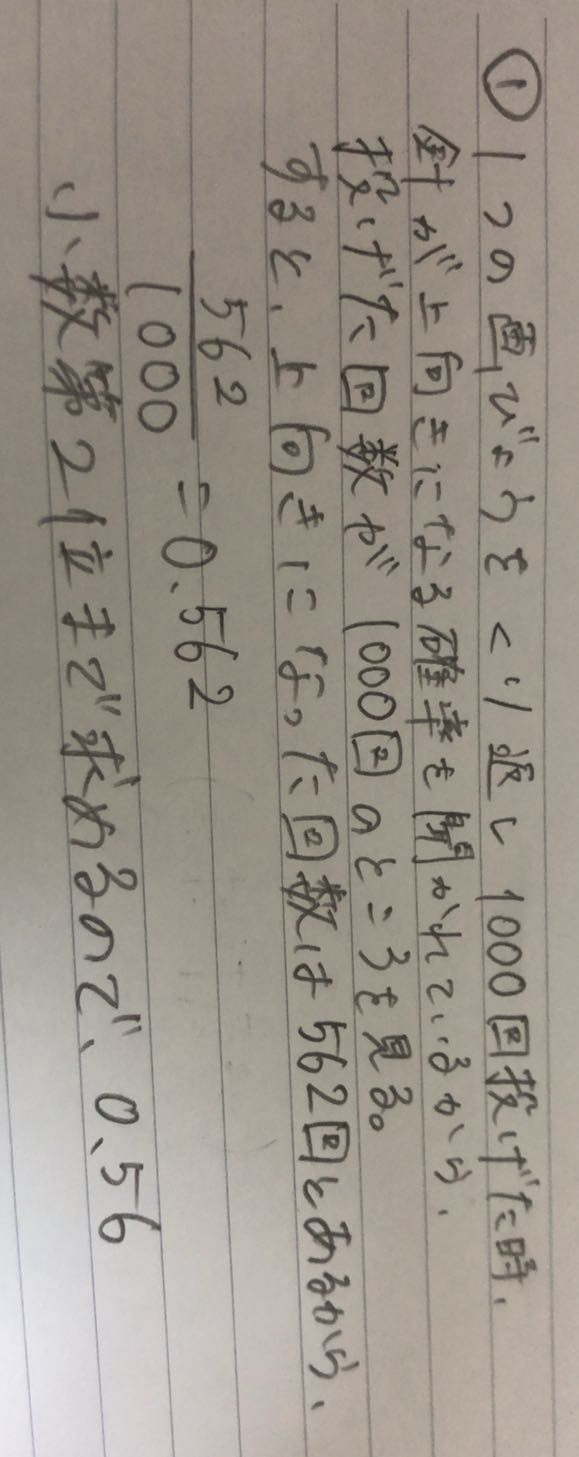 ① 1つの画びょうをくり返し1000回投げた時、
針が上向きになる確率を聞かれているから、
投げた回数が1000回のところを見る。
すると、上向きになった回数は562回とあるから、
562/1000 = 0.562
小数第2位まで求めるので、0.56